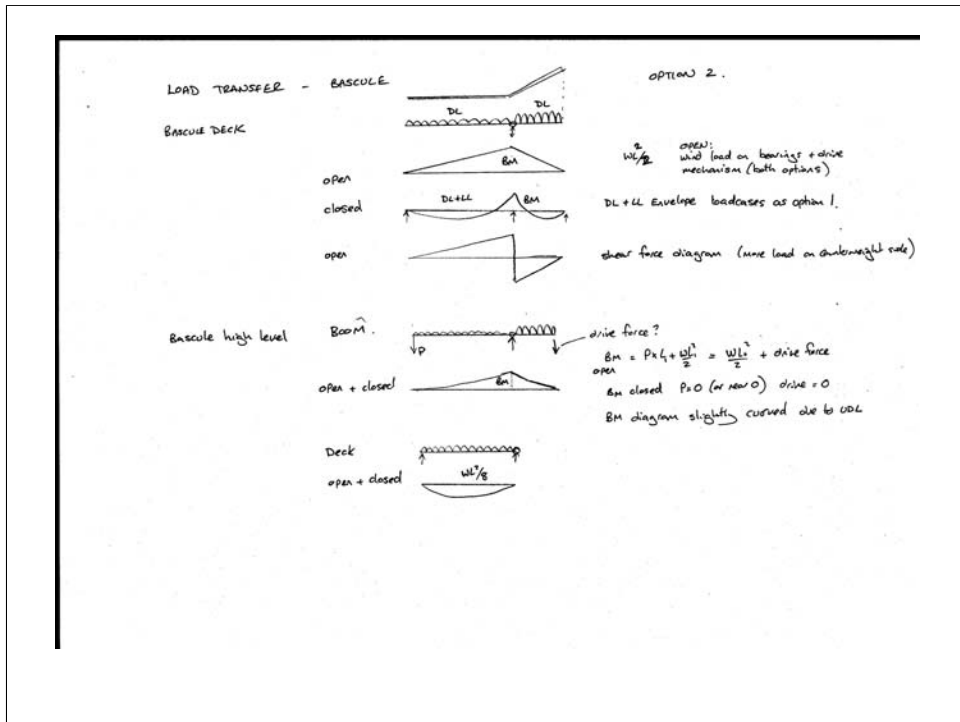 LOAD TRANSFER - BASCULE
OPTION 2.
DL DL
BASCULE DECK
BM
open
WL²/2
OPEN:
wind load on bearings + drive
mechanism (both options)
closed
DL+LL BM
DL + LL Envelope loadcases as option 1.
open
shear force diagram (more load on counterweight side)
Bascule high level BOOM.
drive force?
P
BM open = P×L₁ + WL₁²/2 = WL₂²/2 + drive force
open + closed
BM
BM closed P=0 (or near 0) drive = 0
BM diagram slightly curved due to UDL
Deck
open + closed
WL²/8